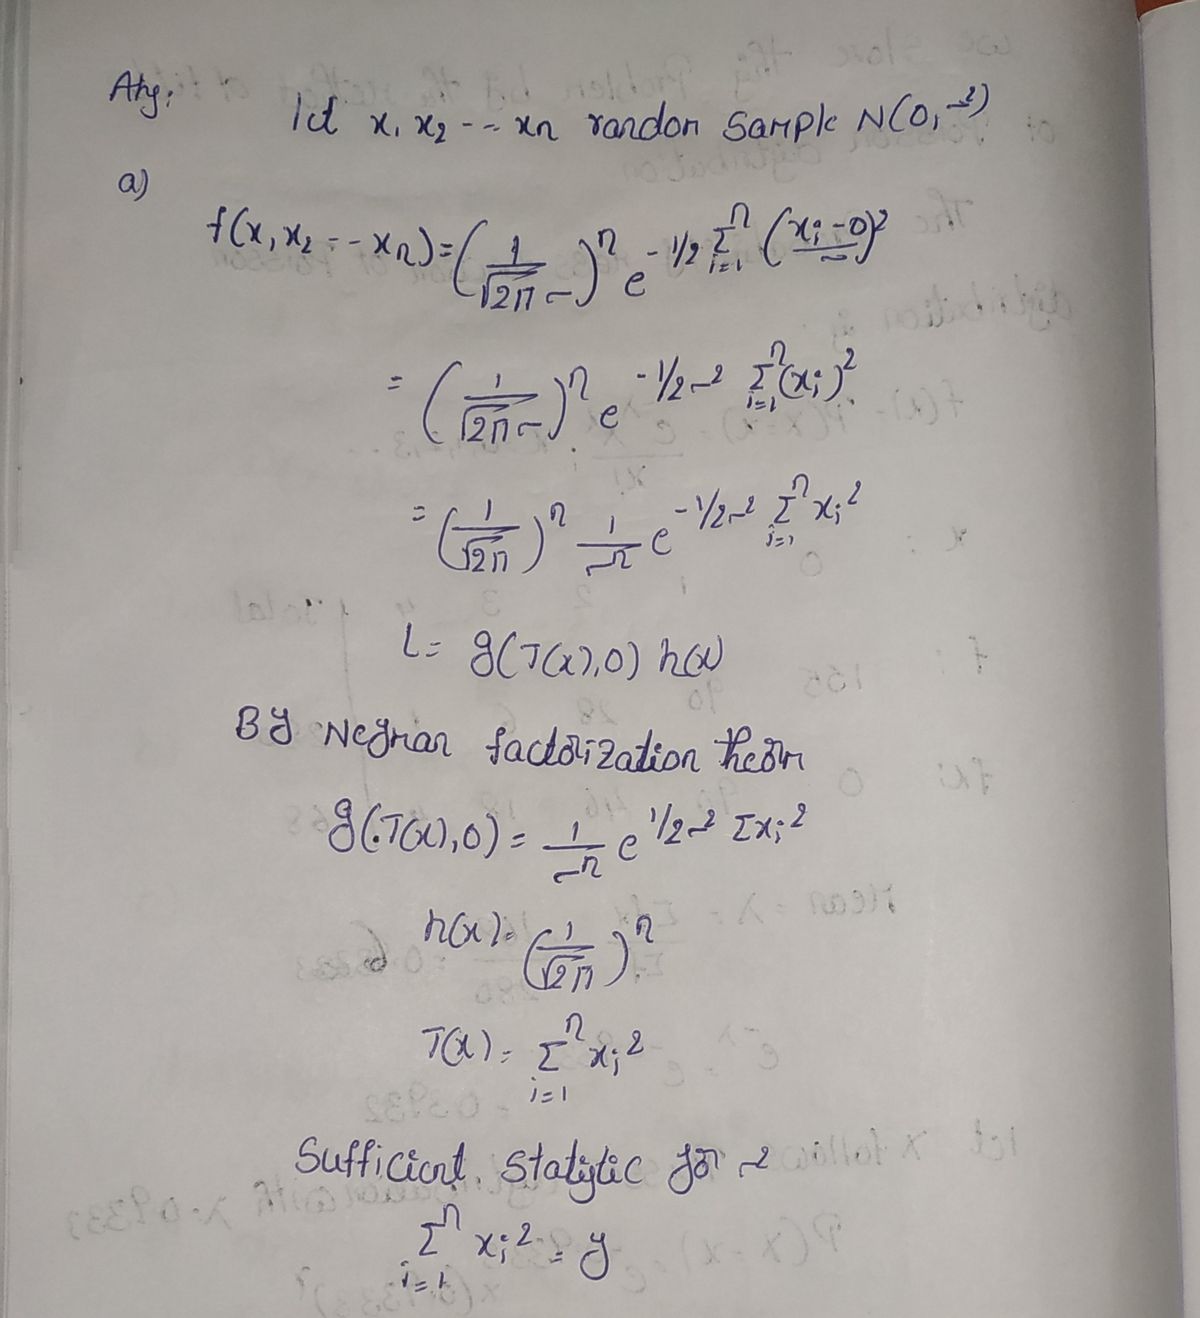 Ans:
let x₁ x₂ -- xn random sample N(0, σ²)
a)
f(x, x₂ -- xn) = (1/√2π σ)ⁿ e^(-1/2 Σ_{i=1}^n (xi-0/σ)²)
= (1/√2π σ)ⁿ e^(-1/2σ² Σ_{i=1}^n (xi)²)
= (1/√2π)ⁿ 1/σⁿ e^(-1/2σ² Σ_{i=1}^n xi²)
L = g(T(x), 0) h(x)
By Neyman factorization theorm
g(T(x), 0) = 1/σⁿ e^(1/2σ² Σxi²)
h(x) = (1/√2π)ⁿ
T(x) = Σ_{i=1}^n xi²
Sufficient statistic for σ²
Σ_{i=1}^n xi² = y